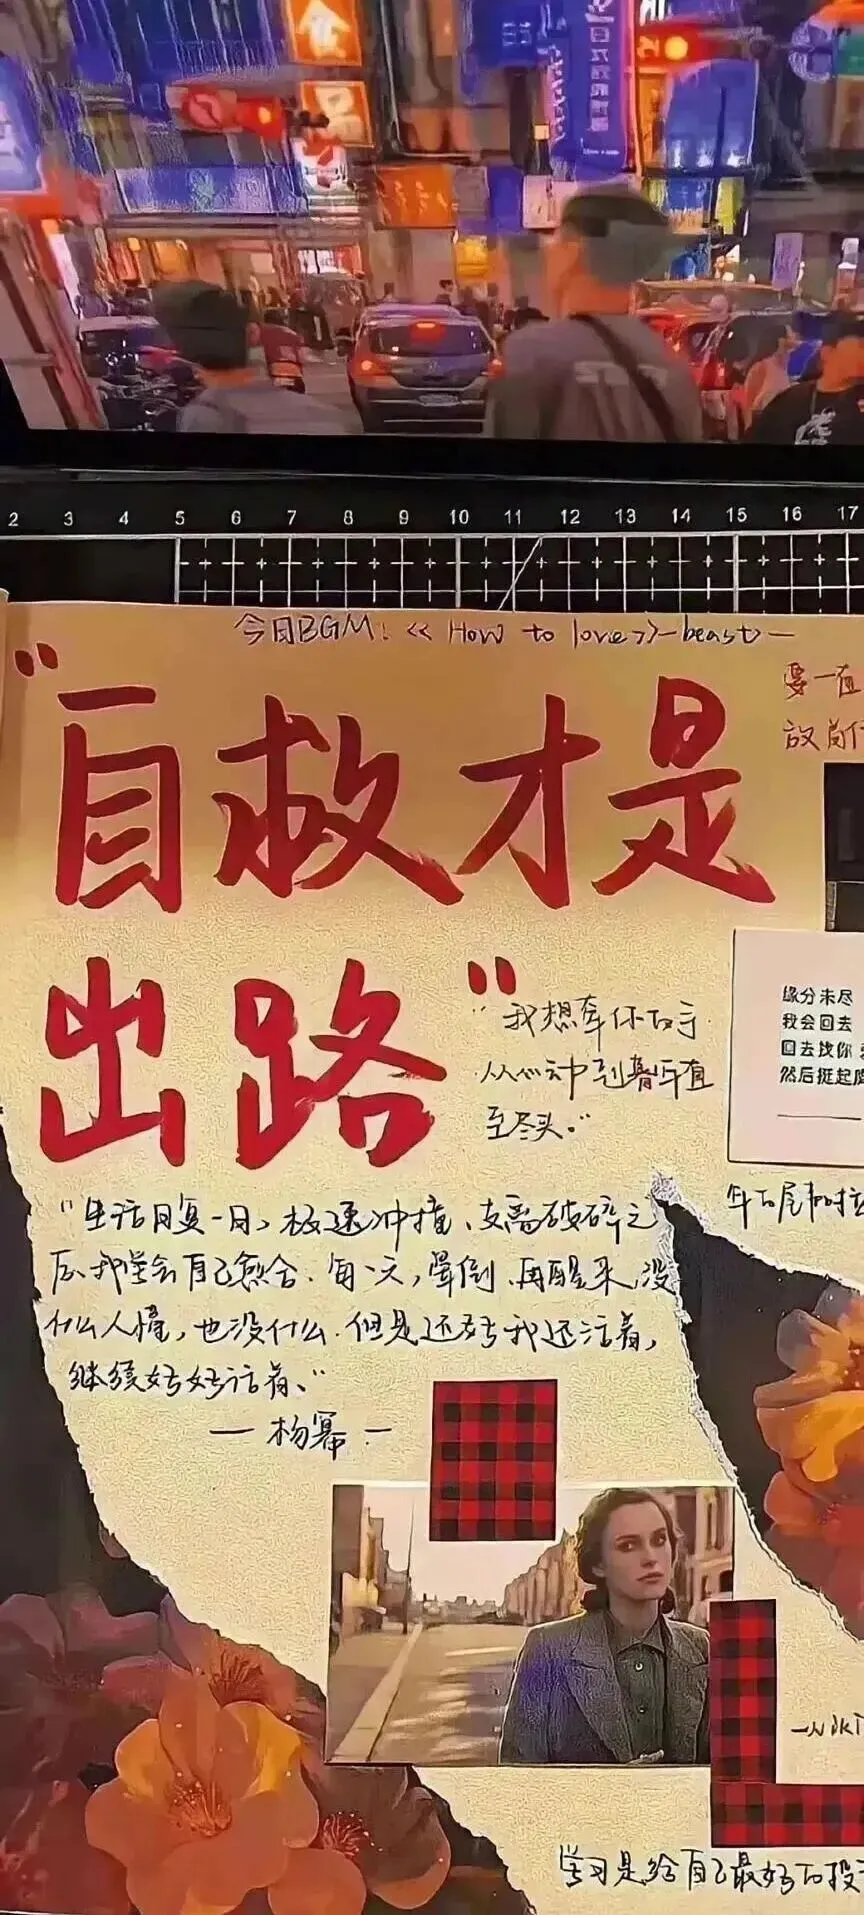 金
2 3 4 5 6 7 8 9 10 11 12 13 14 15 16 17
今日BGM:《How to love》—beast—
要一直
"自救才是
出路"
"我想牵你的手
从心动到暮年直
至尽头。"
缘分未尽
我会回去
回去找你
然后挺起
"生活日复一日,极速冲撞、支离破碎之
后,我学会自己愈合.每一天,晕倒.再醒来,没
什么人懂,也没什么.但是还好我还活着,
继续好好活着。"
—杨幂—
学习是给自己最好的投